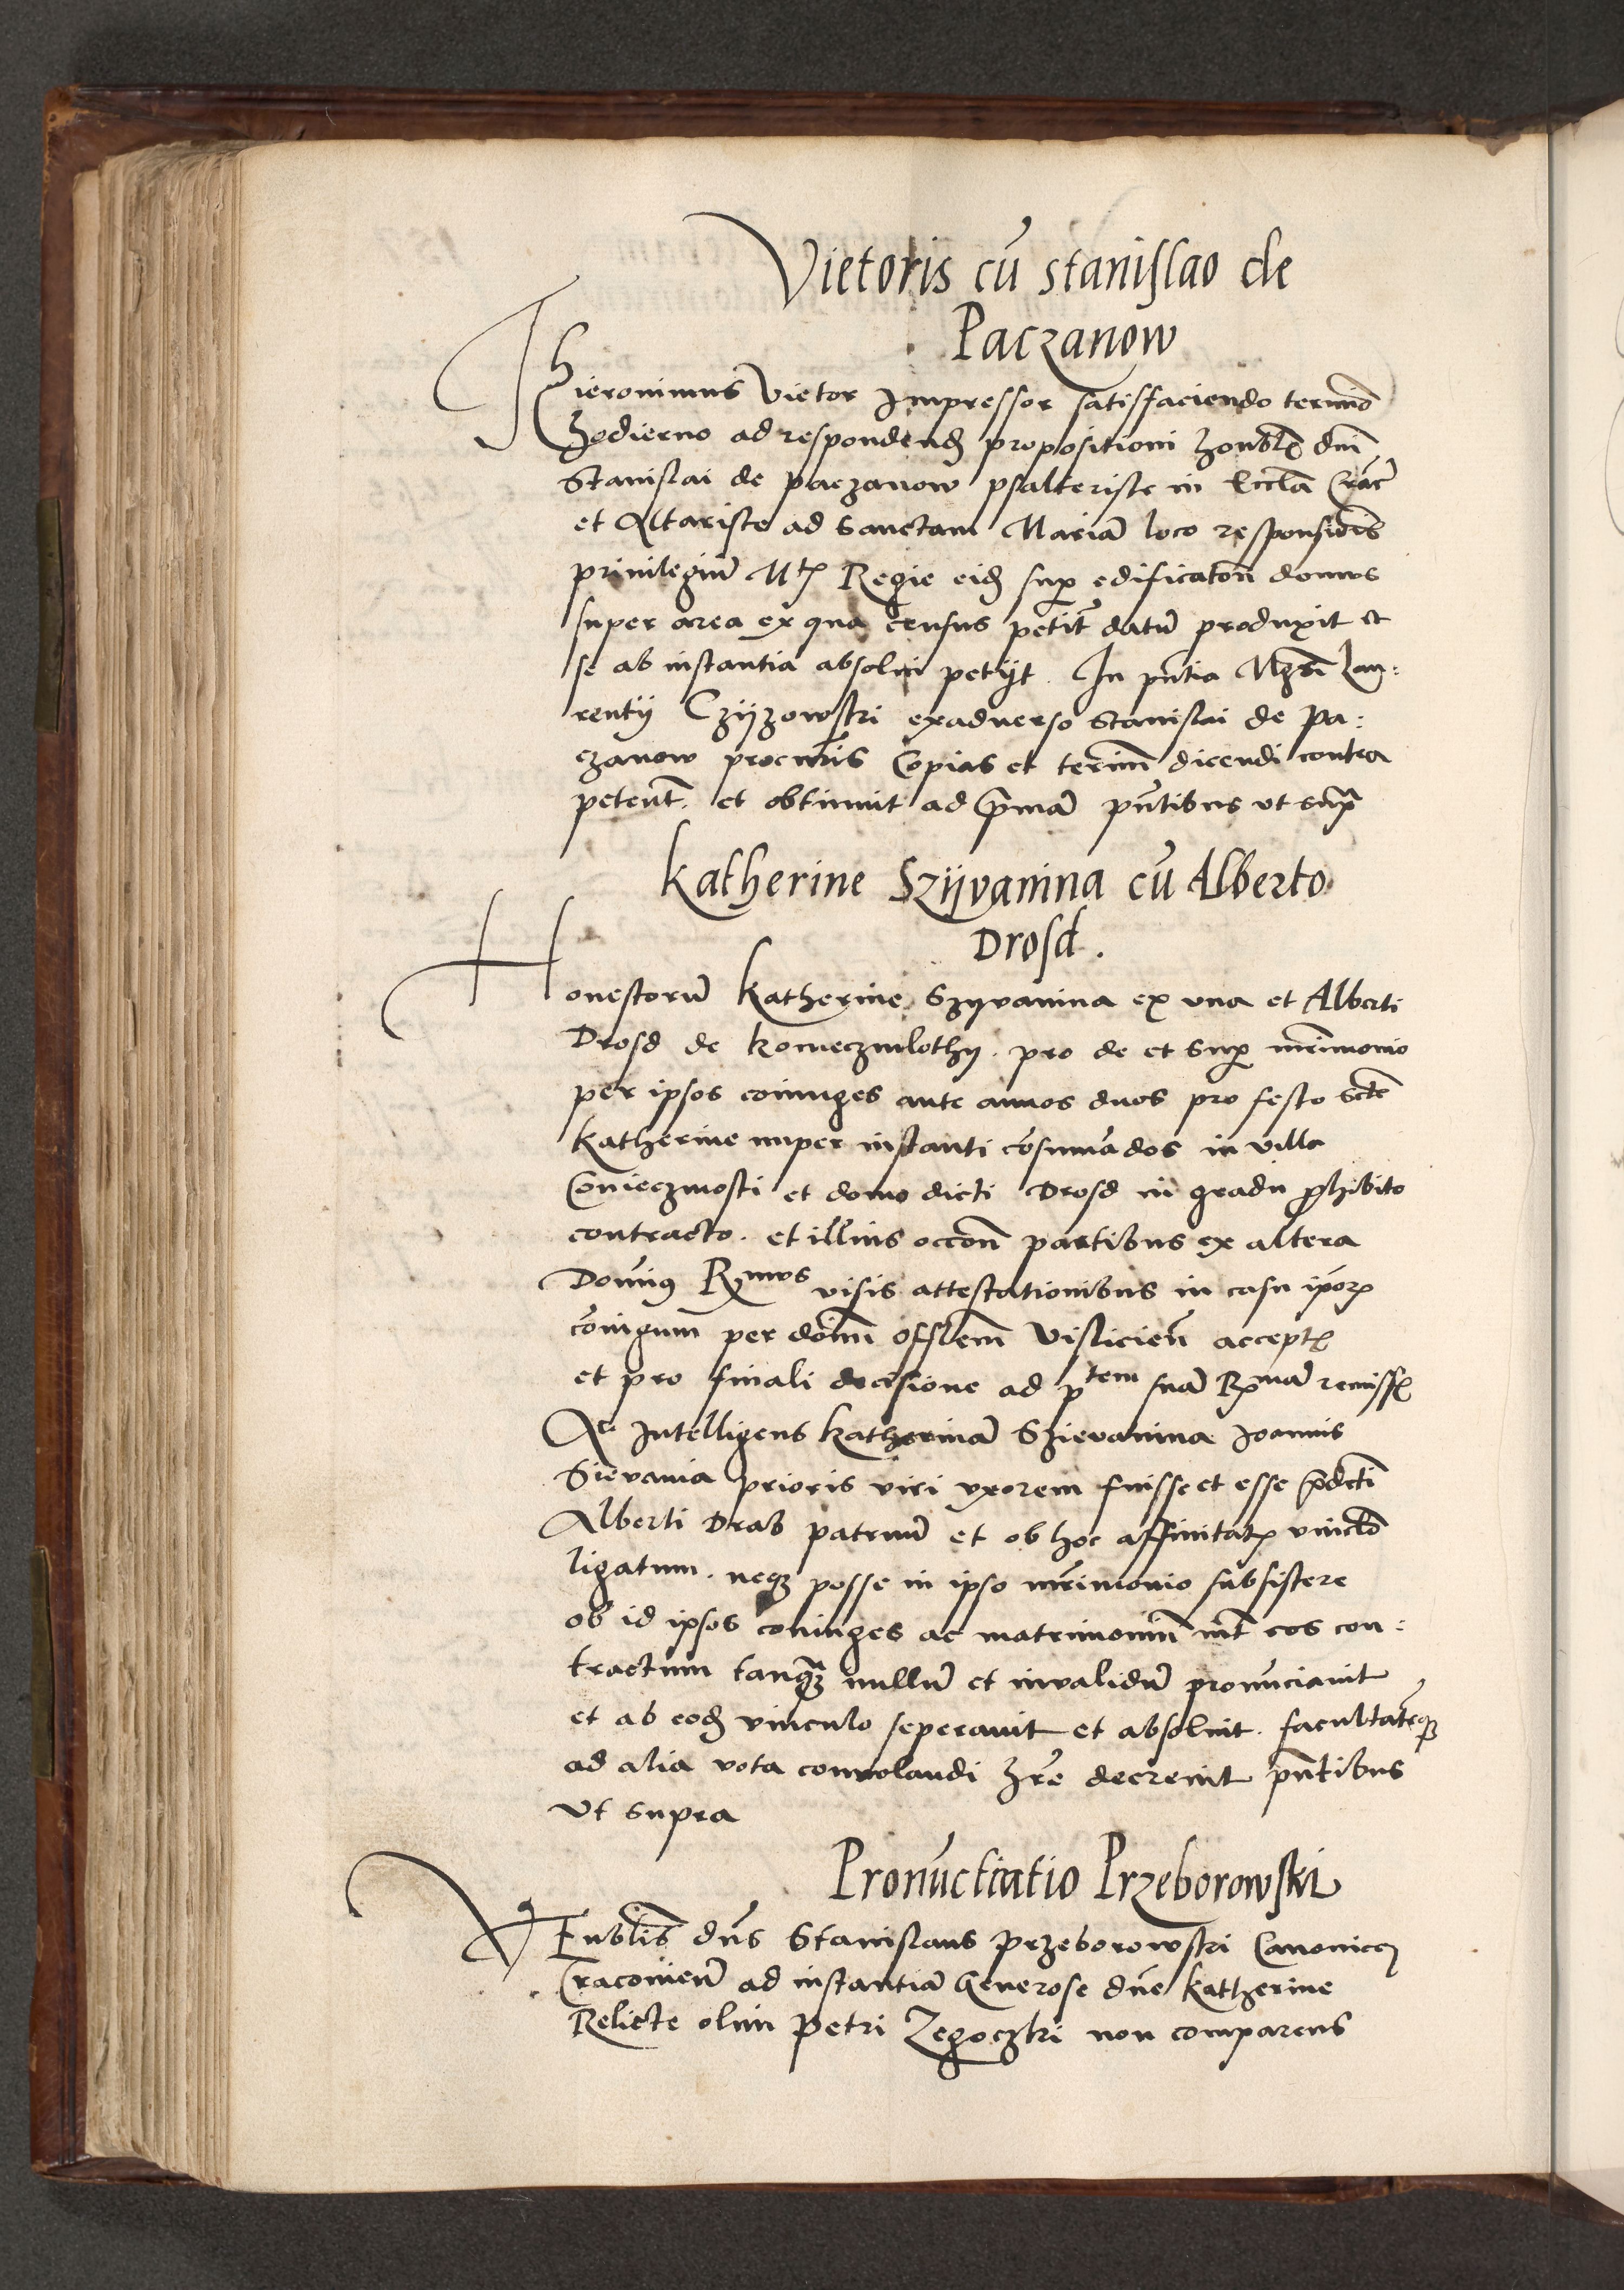 Vietoris cū stanislao de
Paczanow
Hieronimus Vietor Impressor satisfaciendo termīo
hodierno ad respondendū propositioni honoblis dnī
Stanislai de paczanow psalteriste in Eccłia Crac̄
et Altariste ad Sanctam Mariā loco responsiōis
priuilegiū Mtis Regie eidē sup edificatōn domus
super area ex qua census petit̄ datū produxit et
se ab instantia absolui petijt. In pn̄tia Mgrī Lau:
rentij Czijzowski exaduerso Stanislai de pa:
czanow procuris Copias et termīn dicendi contra
petent̄. et obtinuit ad prīmā pn̄tibus vt supra
Katherine Szijvanina cū Alberto
Drosd.
Honestorū Katherine Szyvanina ex vna et Alberti
Drosd de konieczmlothy. pro de et sup mr̄imonio
per ipsos coniuges ante annos duos pro festo scte
Katherine nuper instanti cōsumādos in villa
Conieczmosti et domo dicti Drosd in gradu prohibito
contracto. et illius occon̄ partibus ex altera
Domiꝰ Rmus visis attestationibus in casu ipōrū
cōniugum per dōnm officlem Visliciēn acceptis
et pro finali decisione ad ptem suā Rmā remissis
Ac Intelligens Katherinā Szievanina Joannis
Sievania prioris viri vxorem fuisse et esse predcti
Alberti Drab patruū et ob hoc affinitatis vinclo
ligatum. neqꝫ posse in ipso mr̄imonio subsistere
ob id ipsos coniuges ac matrimoniū int̄ eos con:
tractum tanqꝫ nullū et inualidū pronūciauit
et ab eodē vinculo seperauit et absoluit. facultatēqꝫ
ad alia vota conuolandi hr̄e decreuit pn̄tibus
vt supra
Pronūctiatio Przeborowski
VEnblis dn̄s Stanislaus przeborowski Canonicꝰ
Cracouiēn ad instantiā Generose dn̄e Katherine
Relicte olim petri Zegoczki non comparens